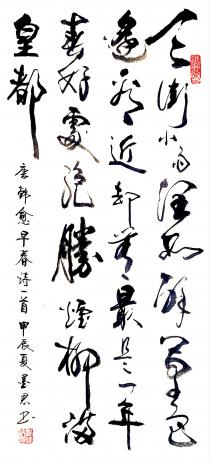 天街小雨润如酥草色
遥看近却无最是一年
春好處绝勝煙柳满
皇都
唐韩愈早春诗一首甲辰夏墨君书